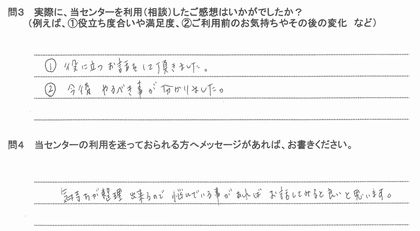 問3 実際に、当センターを利用(相談)したご感想はいかがでしたか?
(例えば、①役立ち度合いや満足度、②ご利用前のお気持ちやその後の変化 など)
① 役に立つお話をして頂きました。
② 今後 やるべき事が分かりました。
問4 当センターの利用を迷っておられる方へメッセージがあれば、お書きください。
気持ちが整理出来るので 悩んでいる事があれば お話してみると良いと思います。